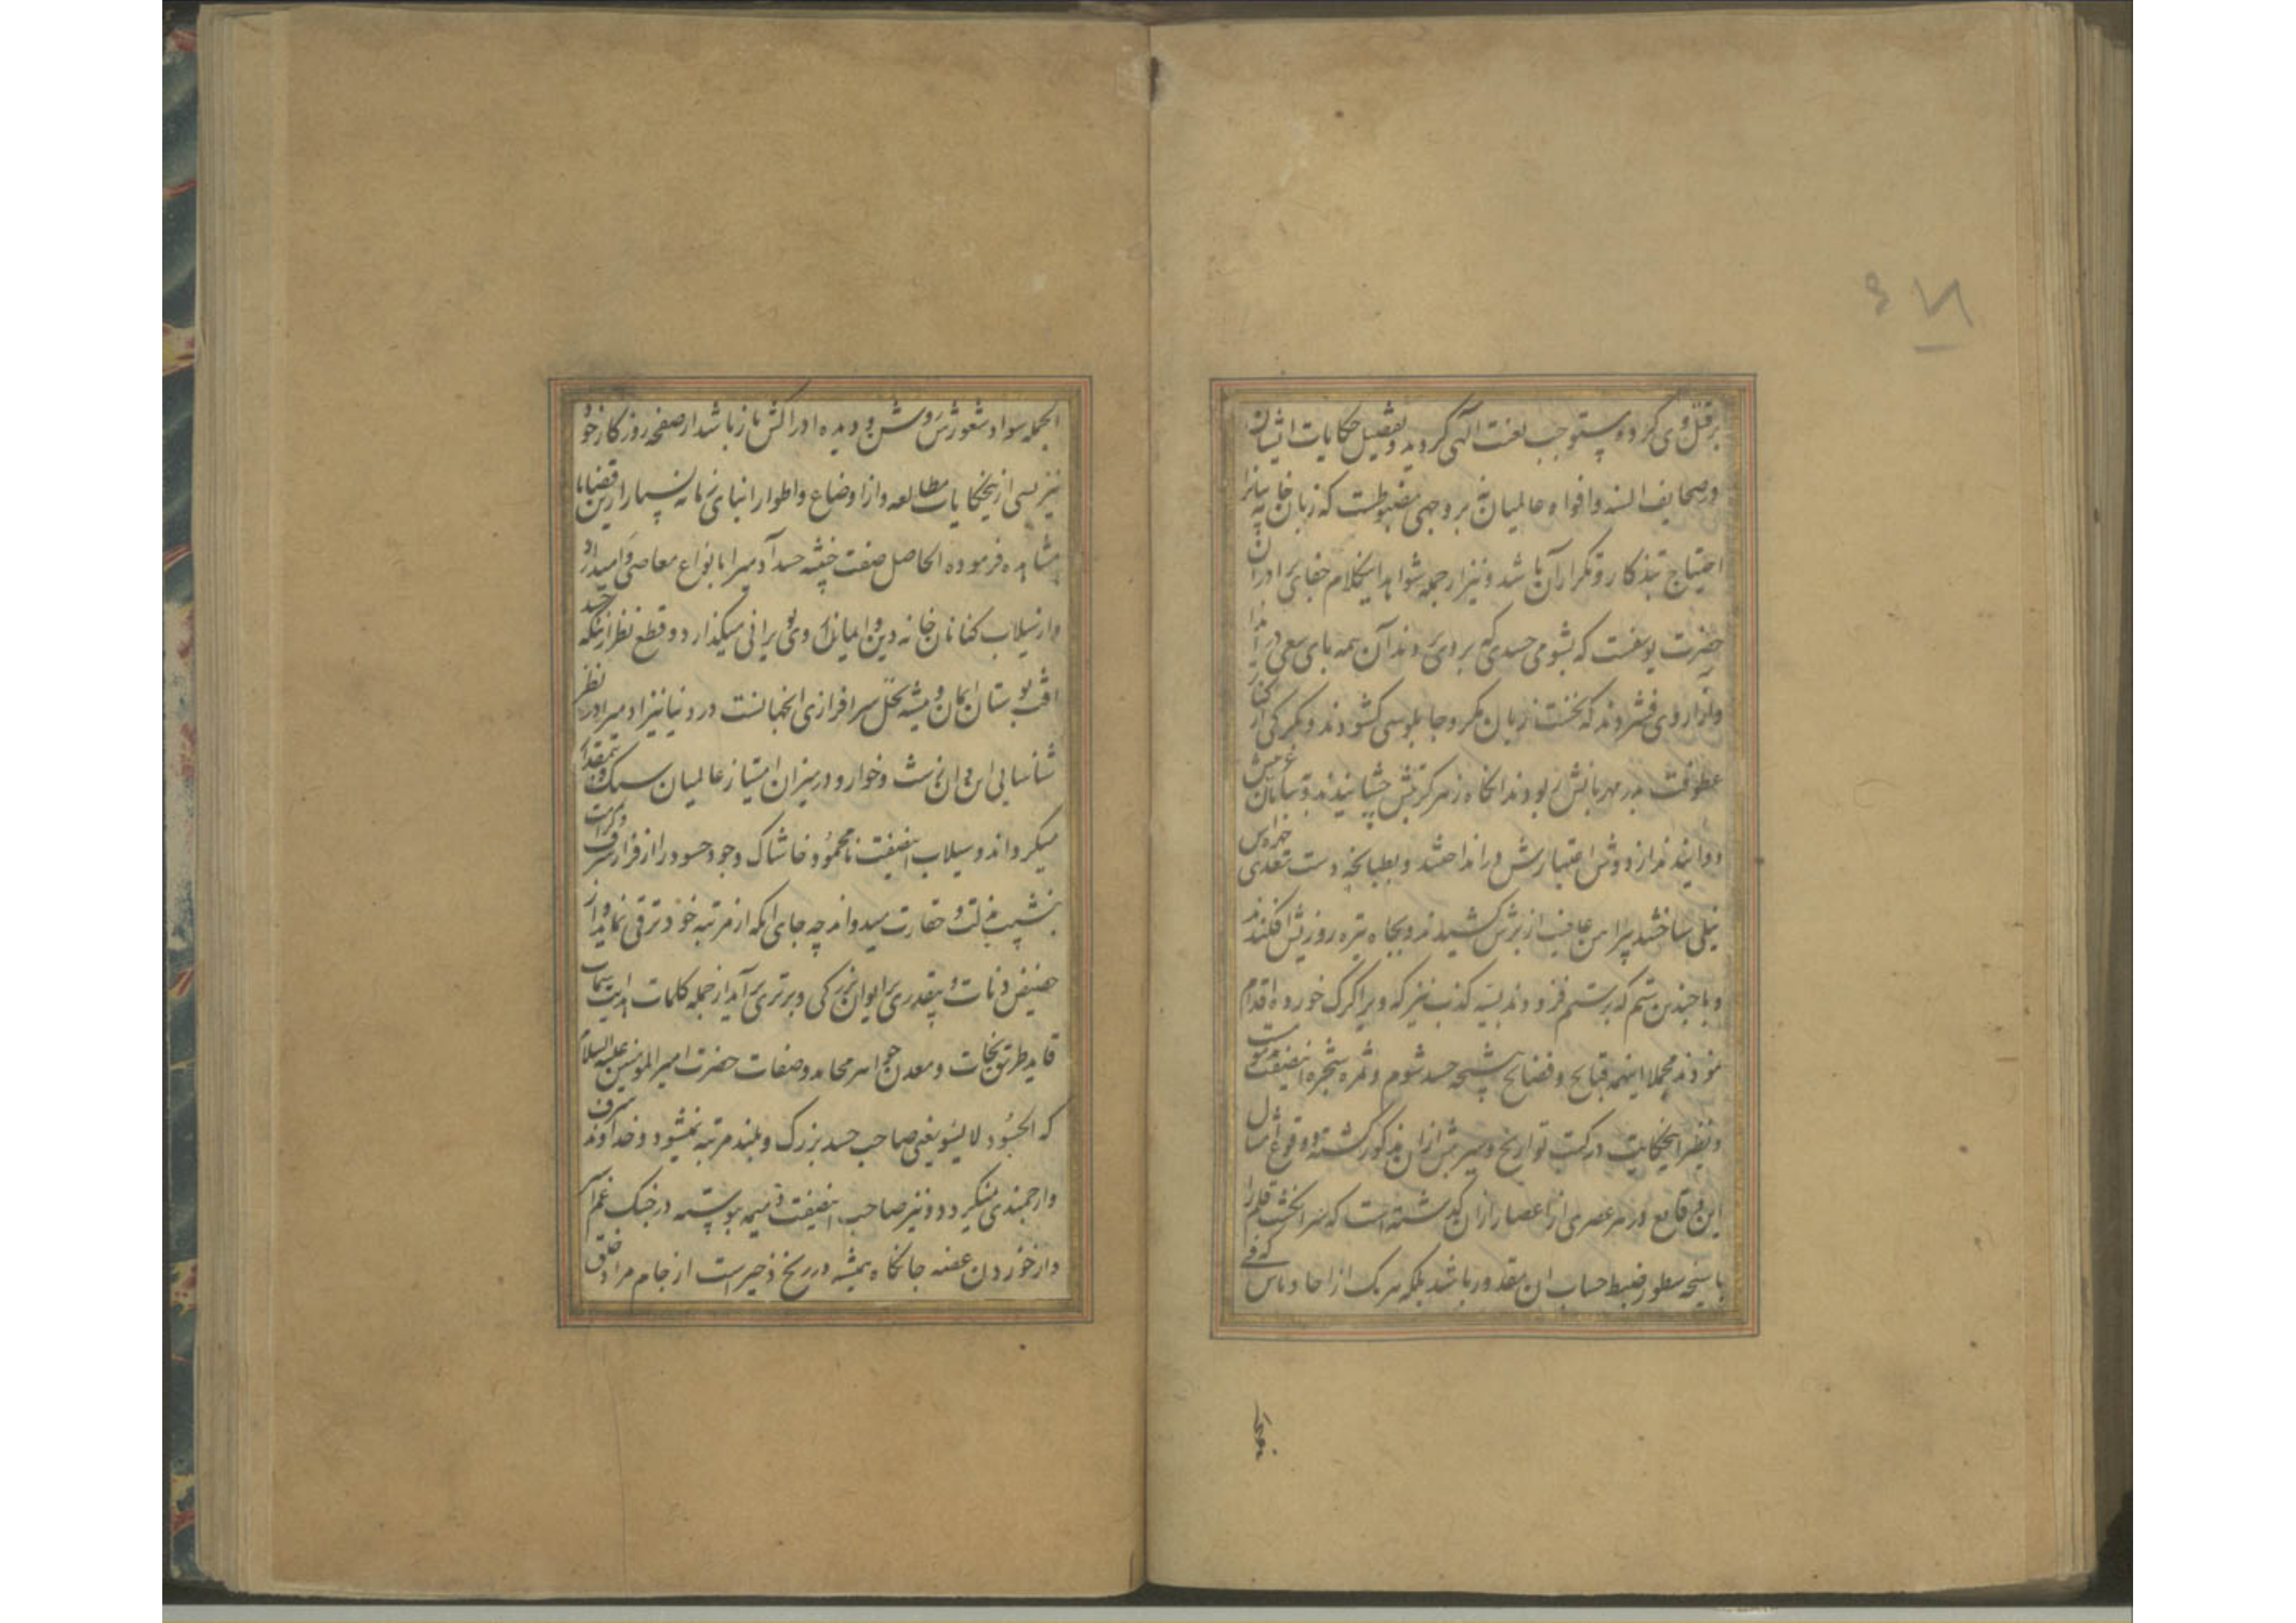 برقتل وی کرد و مستوجب لعنت آلهی گردید و تفصیل حکایات ایشان
در صحایف السنه و افواه عالمیان نه بر وجهی مضبوطست که زبان خامه بیانرا
احتیاج بتذکار و تکرار آن باشد و نیز از جمله شواهد اینکلام جفای برادران
حضرت یوسفست که بشومی حسدی که بر وی بردند آن همه پای سعی در ایذا
و آزار وی فشردند که نخست زبان مکر و چاپلوسی گشودند و بمکر کی از کنار
عطوفت پدر مهربانش ربودند انکاه زهر کربتش چشانیدند و بیابان غربتش
دوانیدند از دوش اعتبارش در انداختند و بطپانچه دست تعدی
نیلی ساختند پیراهن عافیت از برش کشیدند و بچاه تیره روزیش افکندند
و با چندین ستم که بر ستم فزودند بتیه کذب نیز که ویرا گرگ خورده اقدام
نمودند مجملا اینهمه قبایح و فضایح نتیجه حسد شوم و ثمره شجره اینصفت
و نظیر اینحکایت در کتب تواریخ و سیر بیش از ان مذکور گشته و وقوع امثال
این وقایع در هر عصری از اعصار از ان گذشته است که سر انگشت قلم را
با سنجه سطور ضبط حساب ان مقدور باشد بلکه هر یک از احاد ناس که فی
الجمله سواد شعورش روشن و دیده ادراکش باز باشد از صفحه روزگار خود
نیز بسی از ینحکایات مطالعه و از اوضاع و اطوار ابنای زمانه بسیار ازین قضایا
مشاهده فرموده الحاصل صفت خبیثه حسد آدمیرا بانواع معاصی وامیدارد
و از سیلاب کناهان خانه دین و ایمانرا روی بویرانی میگذارد و قطع نظر ازینکه حسد
افت بوستان ایمان و تیشه نخل سرافرازی انجهانست در دنیا نیز ادمیرا در نظر
شناسایی این و ان زشت و خوار و در میزان امتیاز عالمیان سبک و بیمقدار
میکرداند و سیلاب اینصفت نامحمود خاشاک وجود حسود را از فراز شرف و کرامت
بنشیب مذلت و حقارت میدواند چه جای انکه از مرتبه خود ترقی نماید و از
حضیض دنائت و بیقدری بر ایوان بزرگی و برتری برآید از جمله کلمات هدایت سمات
قاید طریق نجات و معدن جواهر محامد و صفات حضرت امیر المومنین علیه السلام
که الحسود لا یسود یعنی صاحب حسد بزرگ و بلند مرتبه نمیشود و خداوند شرف
و ارجمندی نمیگردد و نیز صاحب اینصفت ذمیمه پیوسته در چنگ غم اسیر
و از خوردن غصه جانکاه همیشه در رنج ز حیر است از جام مراد خلق